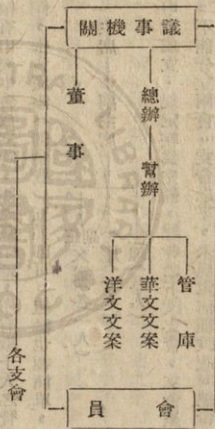 議事機關
總辦
幫辦
董事
管庫
華文文案
洋文文案
各支會
會員